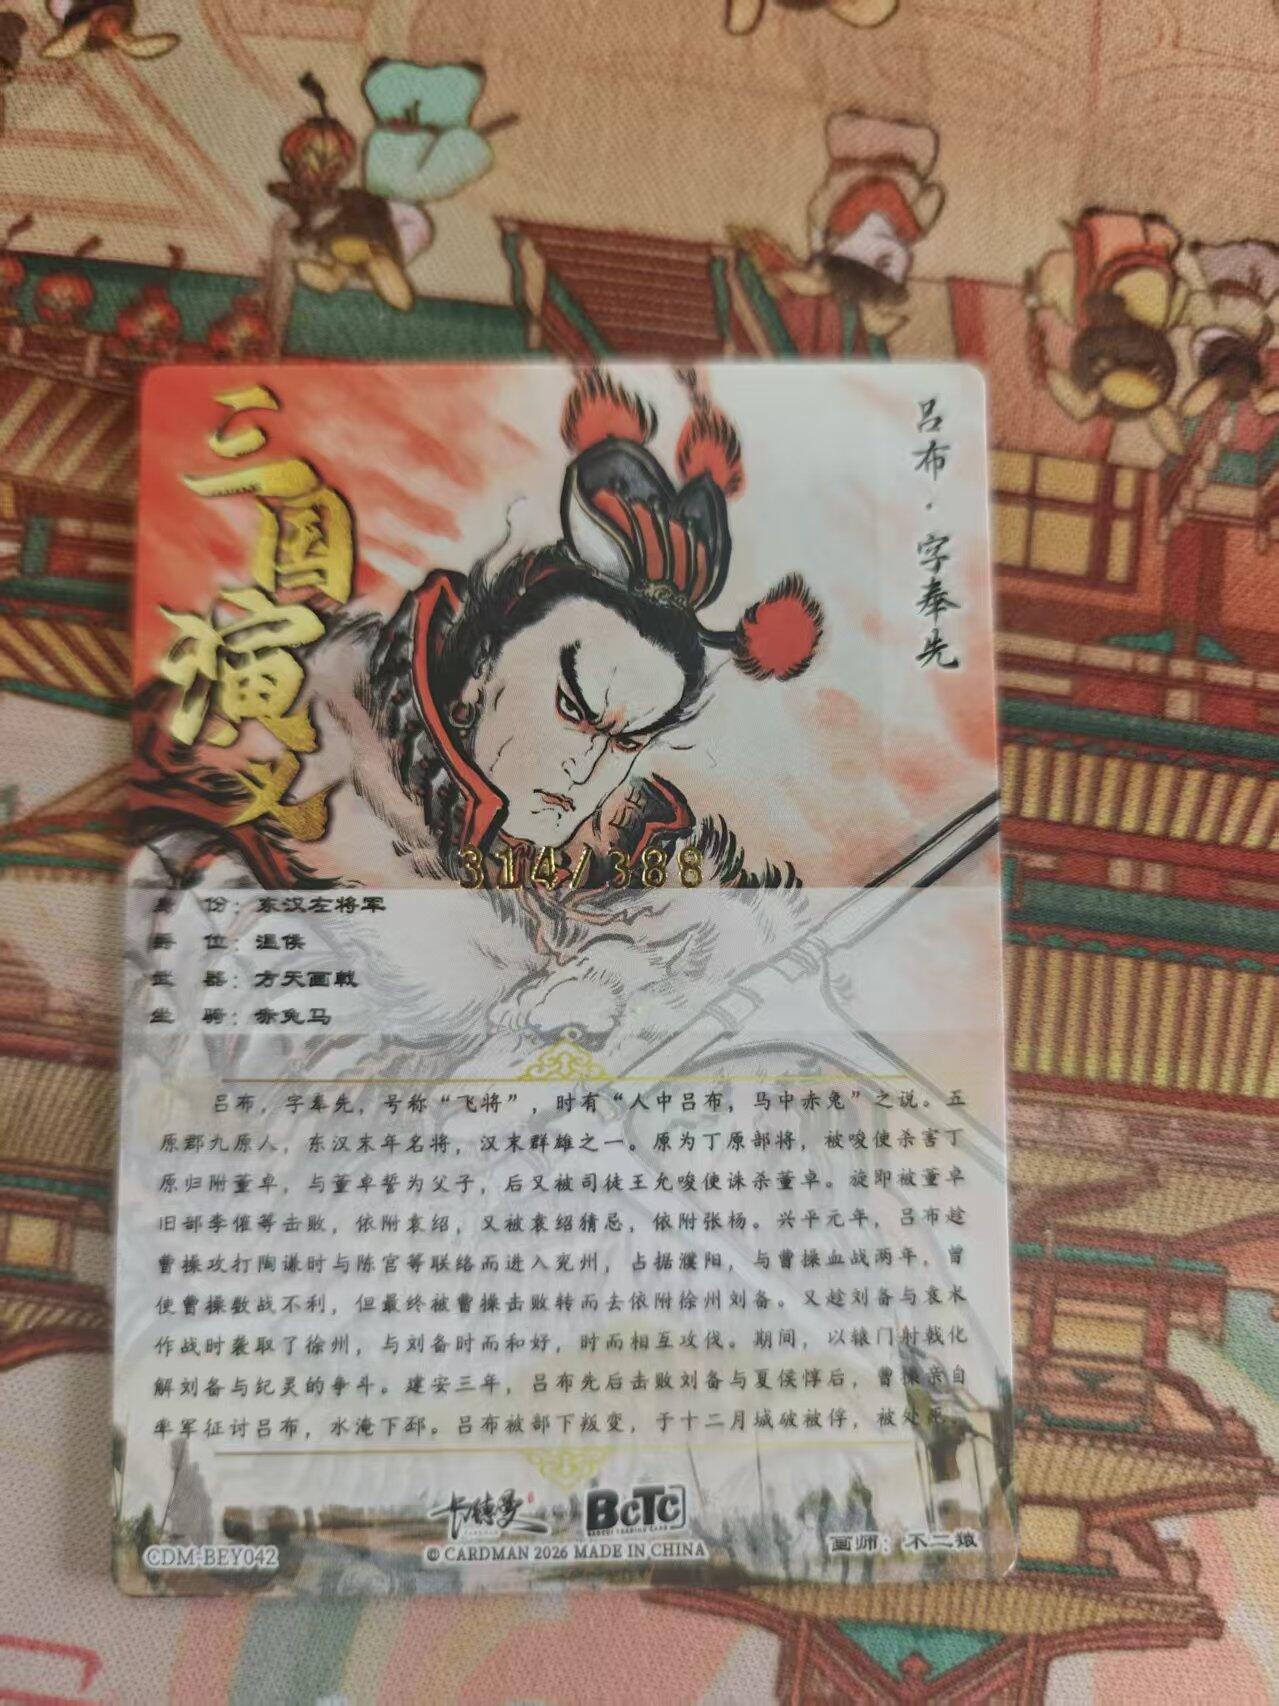 三国演义
吕布·字奉先
314/388
身 份：东汉左将军
爵 位：温侯
武 器：方天画戟
坐 骑：赤兔马
吕布，字奉先，号称“飞将”，时有“人中吕布，马中赤兔”之说。五
原郡九原人，东汉末年名将，汉末群雄之一。原为丁原部将，被唆使杀害丁
原归附董卓，与董卓誓为父子，后又被司徒王允唆使诛杀董卓。旋即被董卓
旧部李傕等击败，依附袁绍，又被袁绍猜忌，依附张杨。兴平元年，吕布趁
曹操攻打陶谦时与陈宫等联络而进入兖州，占据濮阳，与曹操血战两年，曾
使曹操数战不利，但最终被曹操击败转而去依附徐州刘备。又趁刘备与袁术
作战时袭取了徐州，与刘备时而和好，时而相互攻伐。期间，以辕门射戟化
解刘备与纪灵的争斗。建安三年，吕布先后击败刘备与夏侯惇后，曹操亲自
率军征讨吕布，水淹下邳。吕布被部下叛变，于十二月城破被俘，被处死。
卡德曼 BCTC
CDM-BEY042
© CARDMAN 2026 MADE IN CHINA
画师：不二猿